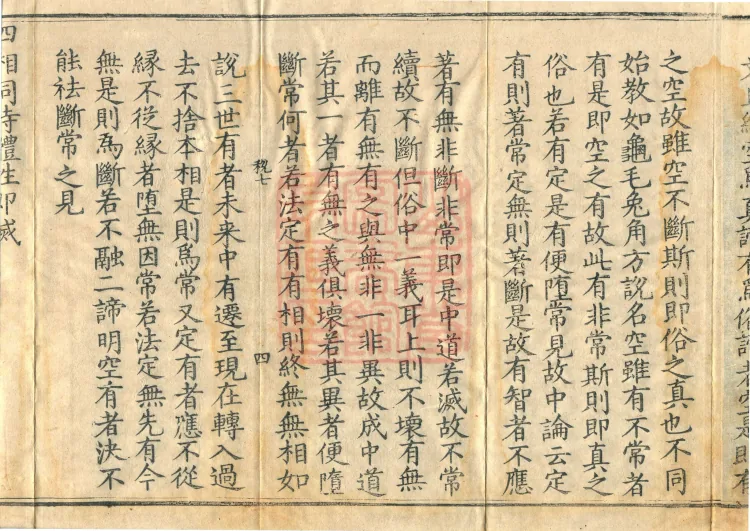 之空故雖空不斷斯則即俗之真也不同
始教如龜毛兔角方說名空雖有不常者
有是即空之有故此有非常斯則即真之
俗也若有定是有便墮常見故中論云定
有則著常定無則著斷是故有智者不應
著有無非斷非常即是中道若滅故不常
續故不斷但俗中一義耳上則不壞有無
而離有無有之與無非一非異故成中道
若其一者有無之義俱壞若其異者便墮
斷常何者若法定有有相則終無無相如
四
說三世有者未来中有遷至現在轉入過
去不捨本相是則為常又定有者應不從
緣不從緣者墮無因常若法定無先有今
無是則為斷若不融二諦明空有者決不
能祛斷常之見
四相同時體性即滅